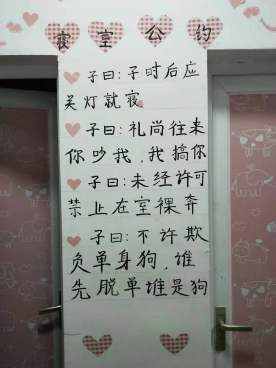 寝室公约
子曰:子时后应
关灯就寝
子曰:礼尚往来
你吵我,我搞你
子曰:未经许可
禁止在室裸奔
子曰:不许欺
负单身狗,谁
先脱单谁是狗